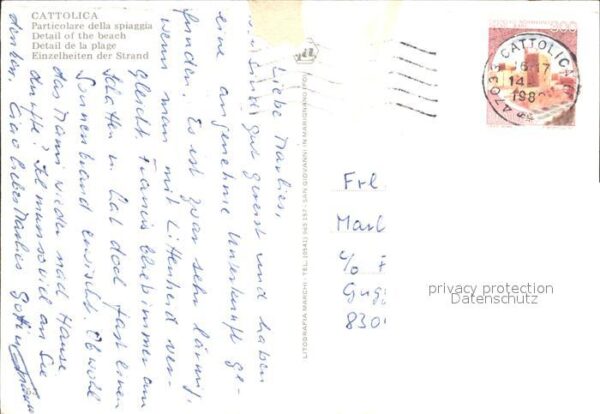 CATTOLICA
Particolare della spiaggia
Detail of the beach
Detail de la plage
Einzelheiten der Strand
Liebe Marlies,
sind gut gereist und haben
eine angenehme Unterkunft ge-
funden. Es ist zwar sehr lärmig,
wenn man mit Littenheid ver-
gleicht. Francis blieb immer am
Schatten u. hat doch fast einen
Sonnenbrand erwischt. Ob wohl
das Mami wieder nach Hause
durfte? Ich muss so viel an Sie
denken. Ciao liebes Marlies
LITOGRAFIA MARCHI - TEL. (0541) 945 257 - SAN GIOVANNI IN MARIGNANO (FO)
300
47033 CATTOLICA
16-17
14
198
Frl
Marl
c/o F
Gug
830
privacy protection
Datenschutz